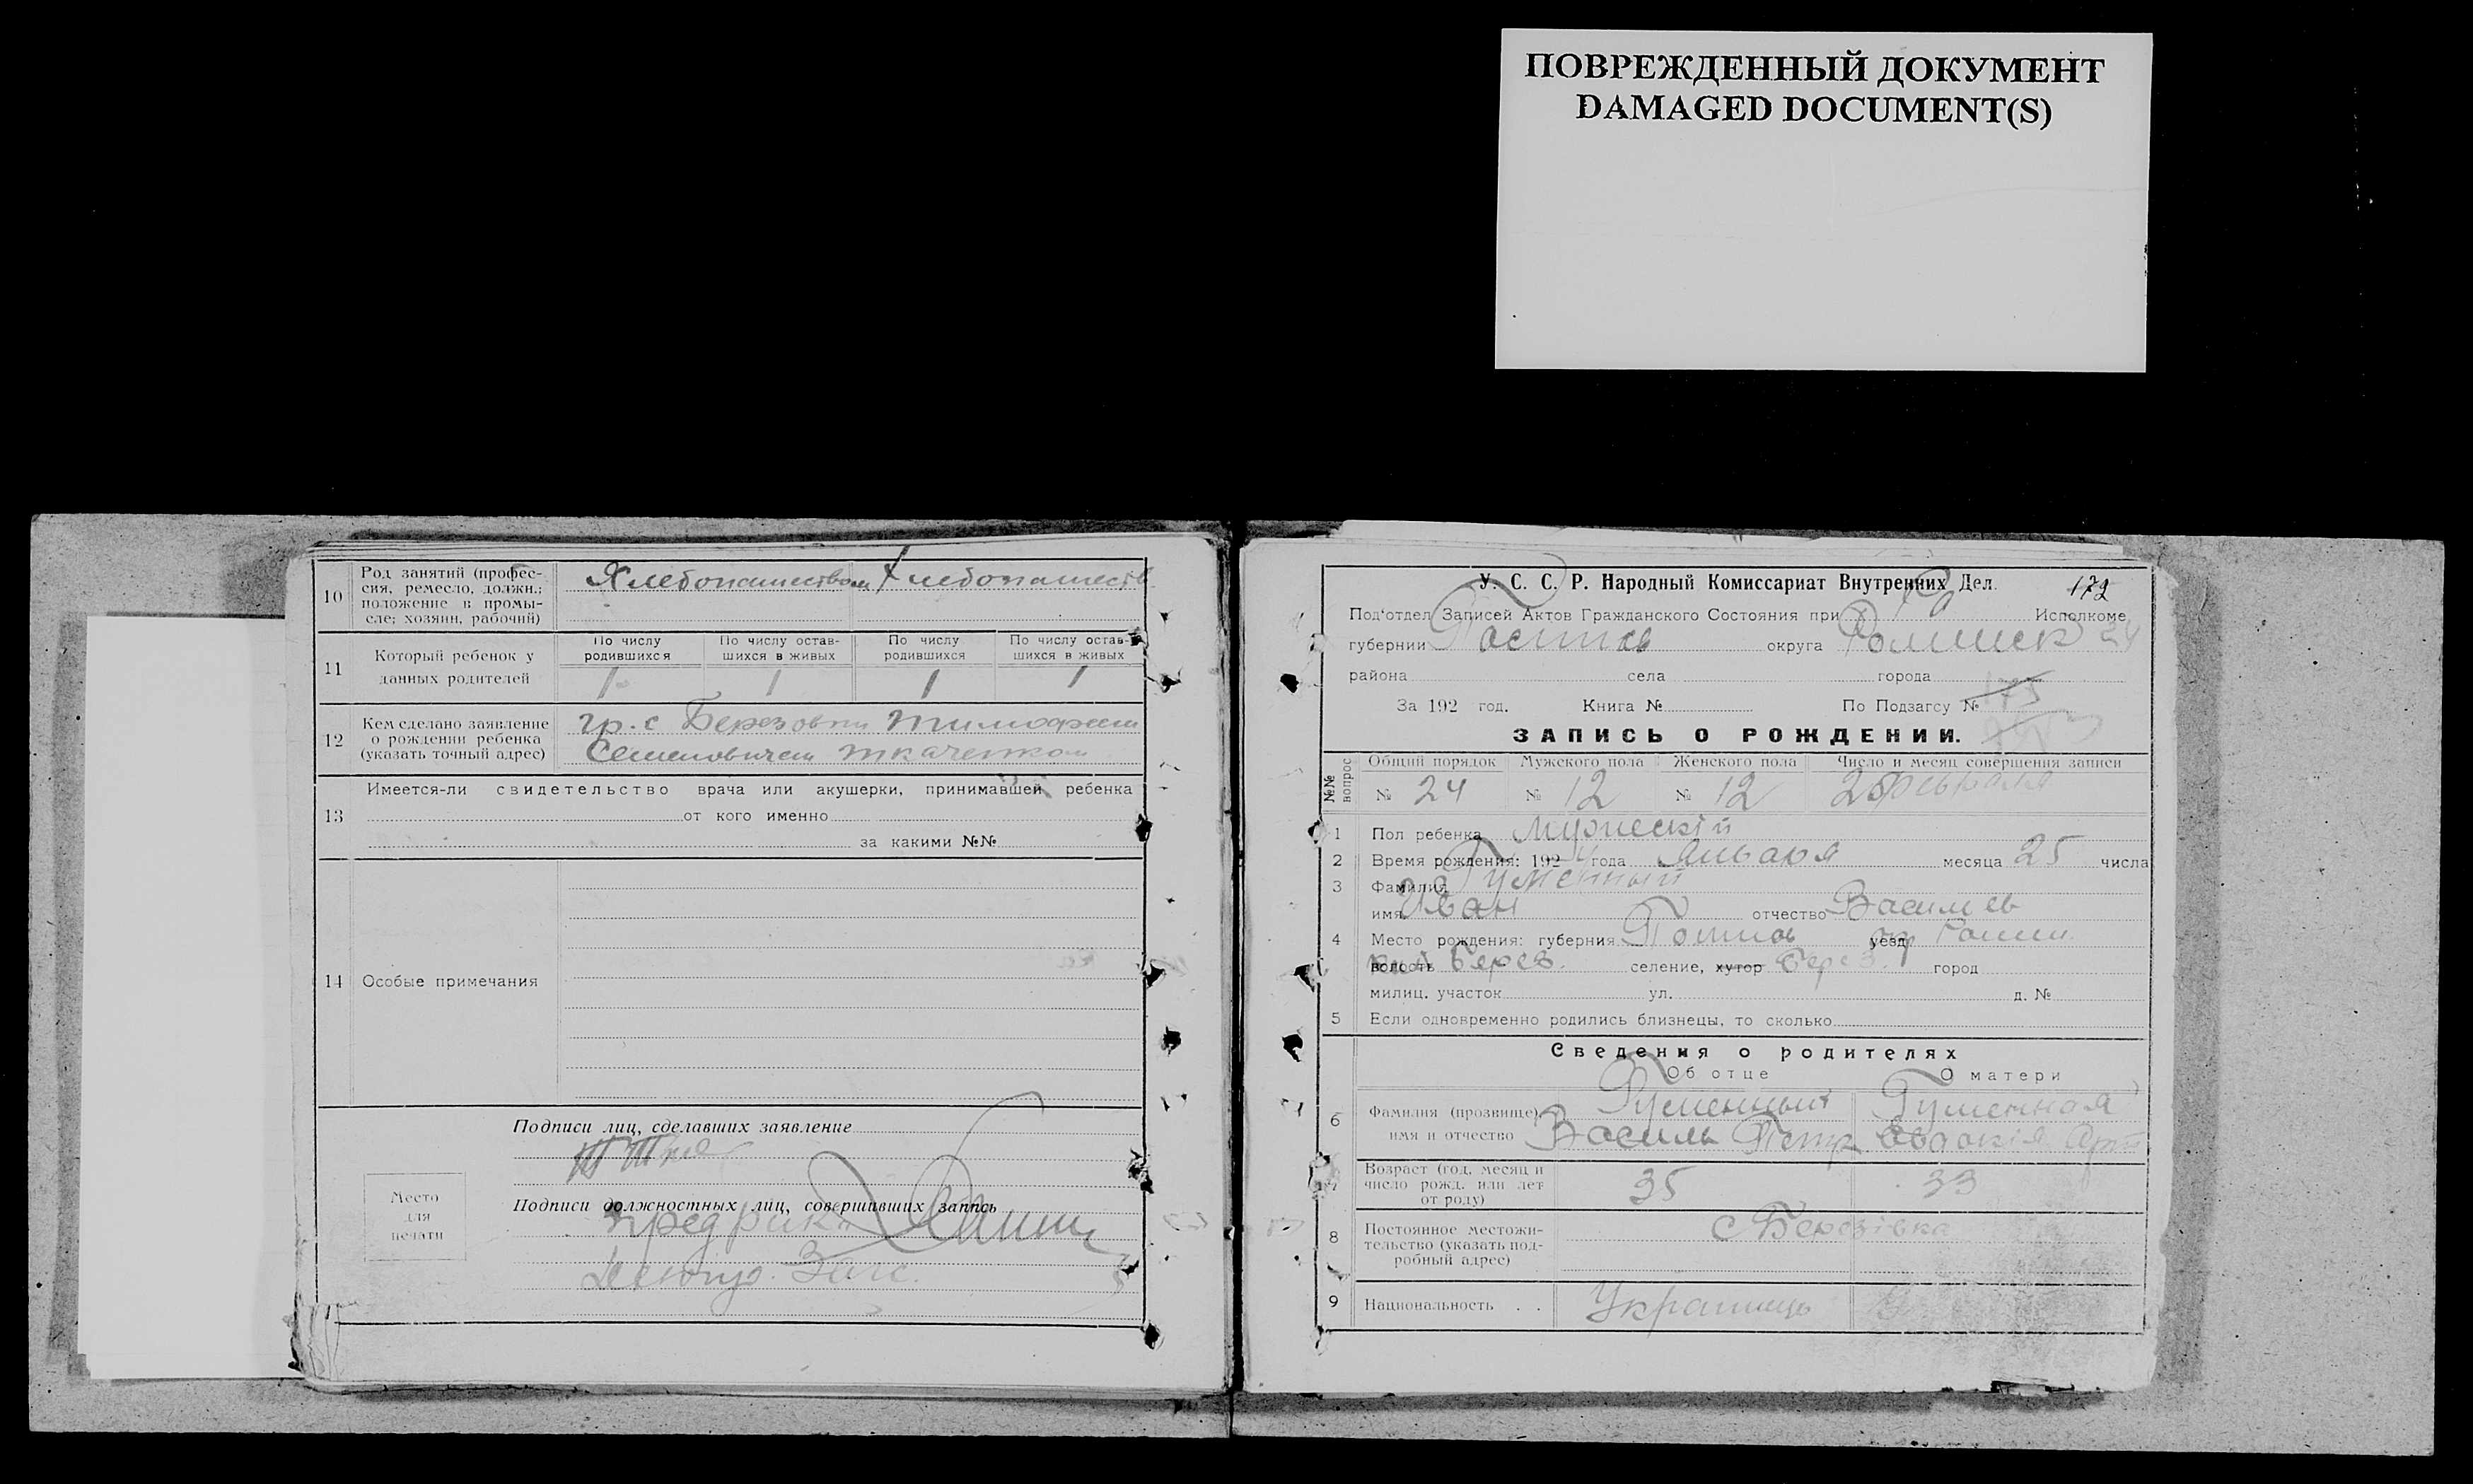 ПОВРЕЖДЕННЫЙ ДОКУМЕНТ
DAMAGED DOCUMENT(S)
10 Род занятий (профес-
сия, ремесло, должн.;
положение в промы-
сле; хозяин, рабочий)
Хлебопашеством Хлебопашеств
11 Который ребенок у
данных родителей
По числу
родившихся
По числу остав-
шихся в живых
По числу
родившихся
По числу остав-
шихся в живых
1 1 1 1
12 Кем сделано заявление
о рождении ребенка
(указать точный адрес)
гр. с Березовки Тимофеем
Семеновичем Ткаченком
13 Имеется-ли свидетельство врача или акушерки, принимавшей ребенка
от кого именно
за какими №№
14 Особые примечания
Подписи лиц, сделавших заявление
Место
для
печати
Подписи должностных лиц, совершивших запись
Загс.
У. С. С. Р. Народный Комиссариат Внутренних Дел. 172
Под'отдел Записей Актов Гражданского Состояния при Исполкоме
губернии округа 24
района села города
За 192 год. Книга № По Подзагсу № 175
ЗАПИСЬ О РОЖДЕНИИ.
№№ вопрос
Общий порядок Мужского пола Женского пола Число и месяц совершения записи
№ 24 № 12 № 12 25 февраля
1 Пол ребенка Мужескій
2 Время рождения: 1924 года Января месяца 25 числа
3 Фамилия Гуменный
имя Иван отчество Васильев
4 Место рождения: губерния уезд
волость Берез. селение, хутор Берез. город
милиц. участок ул. д. №
5 Если одновременно родились близнецы, то сколько
Сведения о родителях
Об отце О матери
6 Фамилия (прозвище),
имя и отчество
Гуменный Гуменная
Василь Петр Евдокія Арт
7 Возраст (год, месяц и
число рожд. или лет
от роду)
35 33
8 Постоянное местожи-
тельство (указать под-
робный адрес)
с Березівка
9 Национальность . . Украинець